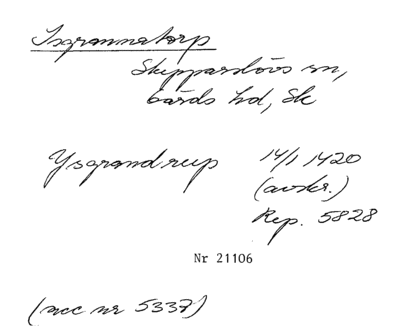 Isgrannatorp
Skepparslövs sn,
Gärds hd, Sk
Ysgrandrup 14/1 1420
(avskr.)
Rep. 5828
Nr 21106
(acc nr 5337)